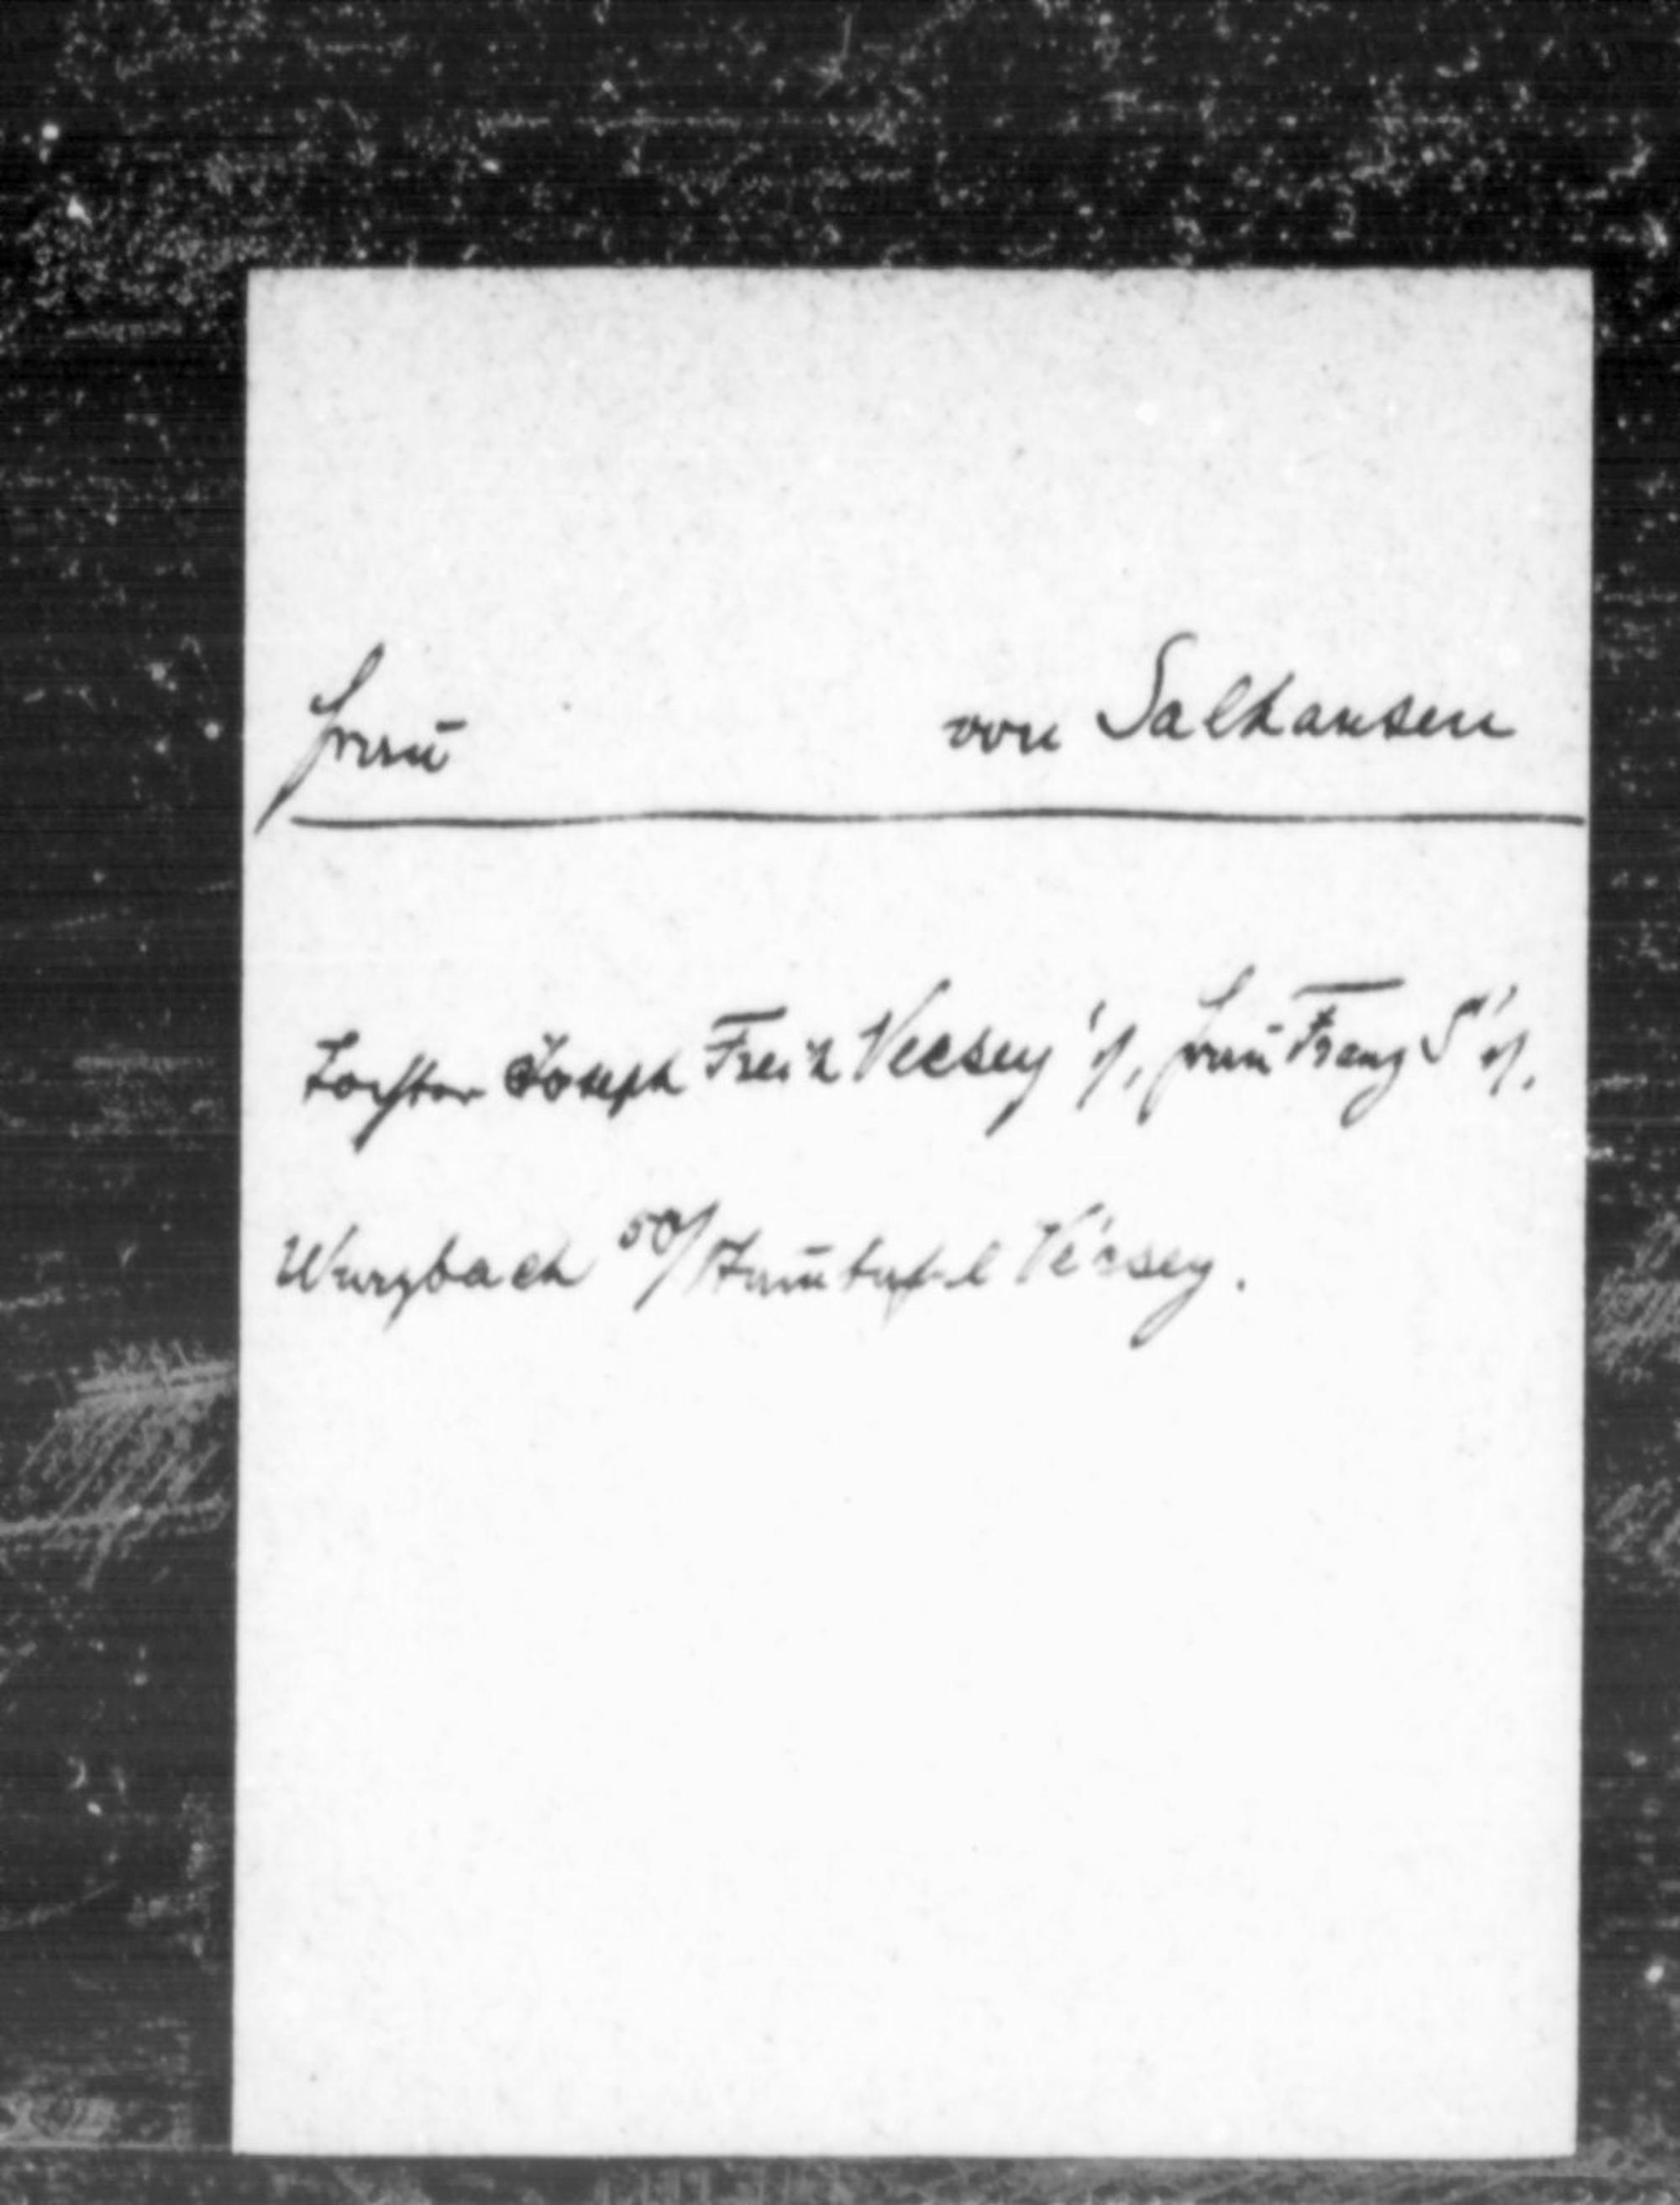 Frau von Salhausen
Tochter Joseph Freih Vecsey's, Frau Franz S's.
Wurzbach 50/Stammtafel Vécsey.